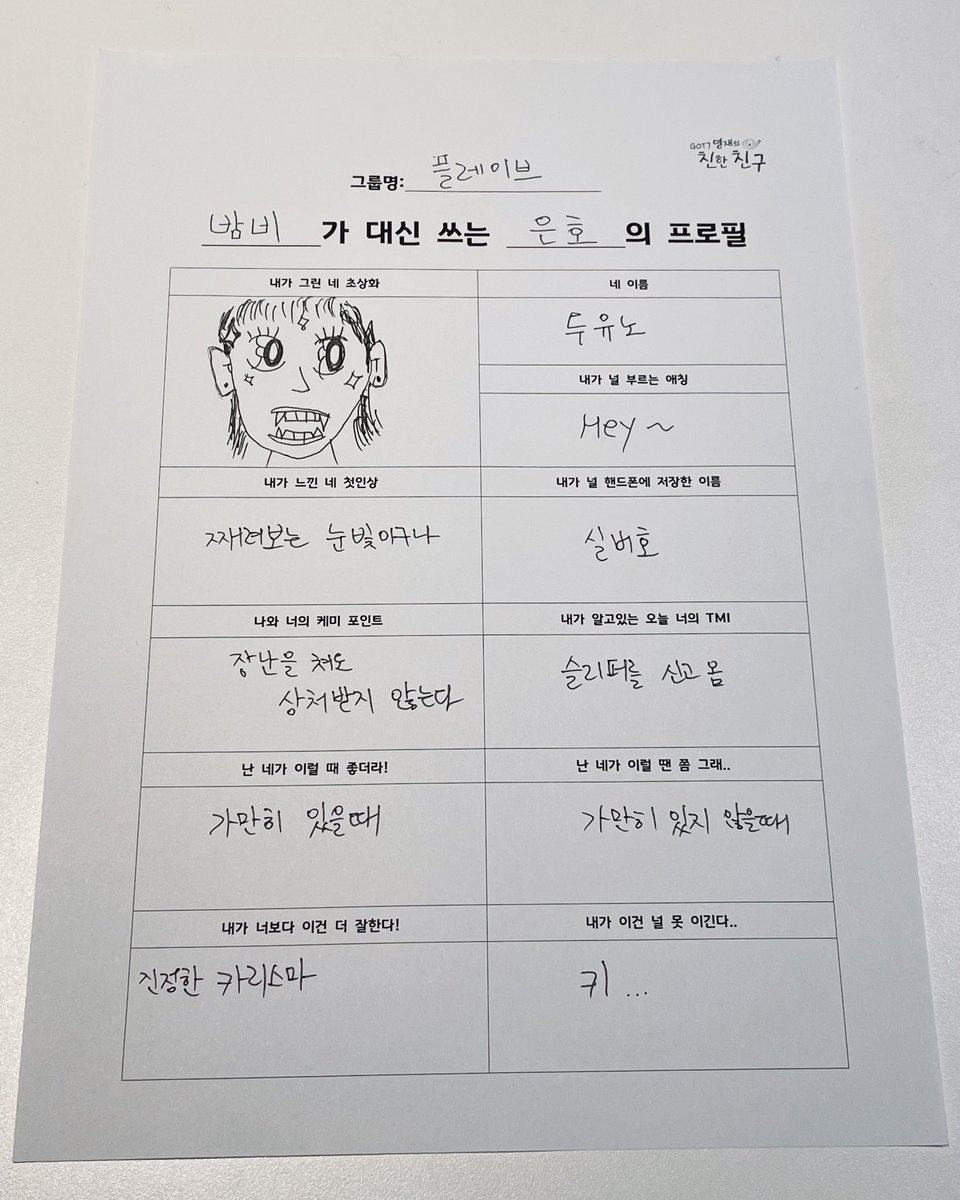 GOT7 영재의
친한 친구
그룹명: 플레이브
밤비가 대신 쓰는 은호의 프로필
내가 그린 네 초상화
네 이름
두유노
내가 널 부르는 애칭
Hey ~
내가 느낀 네 첫인상
내가 널 핸드폰에 저장한 이름
째려보는 눈빛이구나
실버호
나와 너의 케미 포인트
내가 알고있는 오늘 너의 TMI
장난을 쳐도
상처받지 않는다
슬리퍼를 신고 옴
난 네가 이럴 때 좋더라!
난 네가 이럴 땐 쫌 그래..
가만히 있을때
가만히 있지 않을때
내가 너보다 이건 더 잘한다!
내가 이건 널 못 이긴다..
진정한 카리스마
키 ...